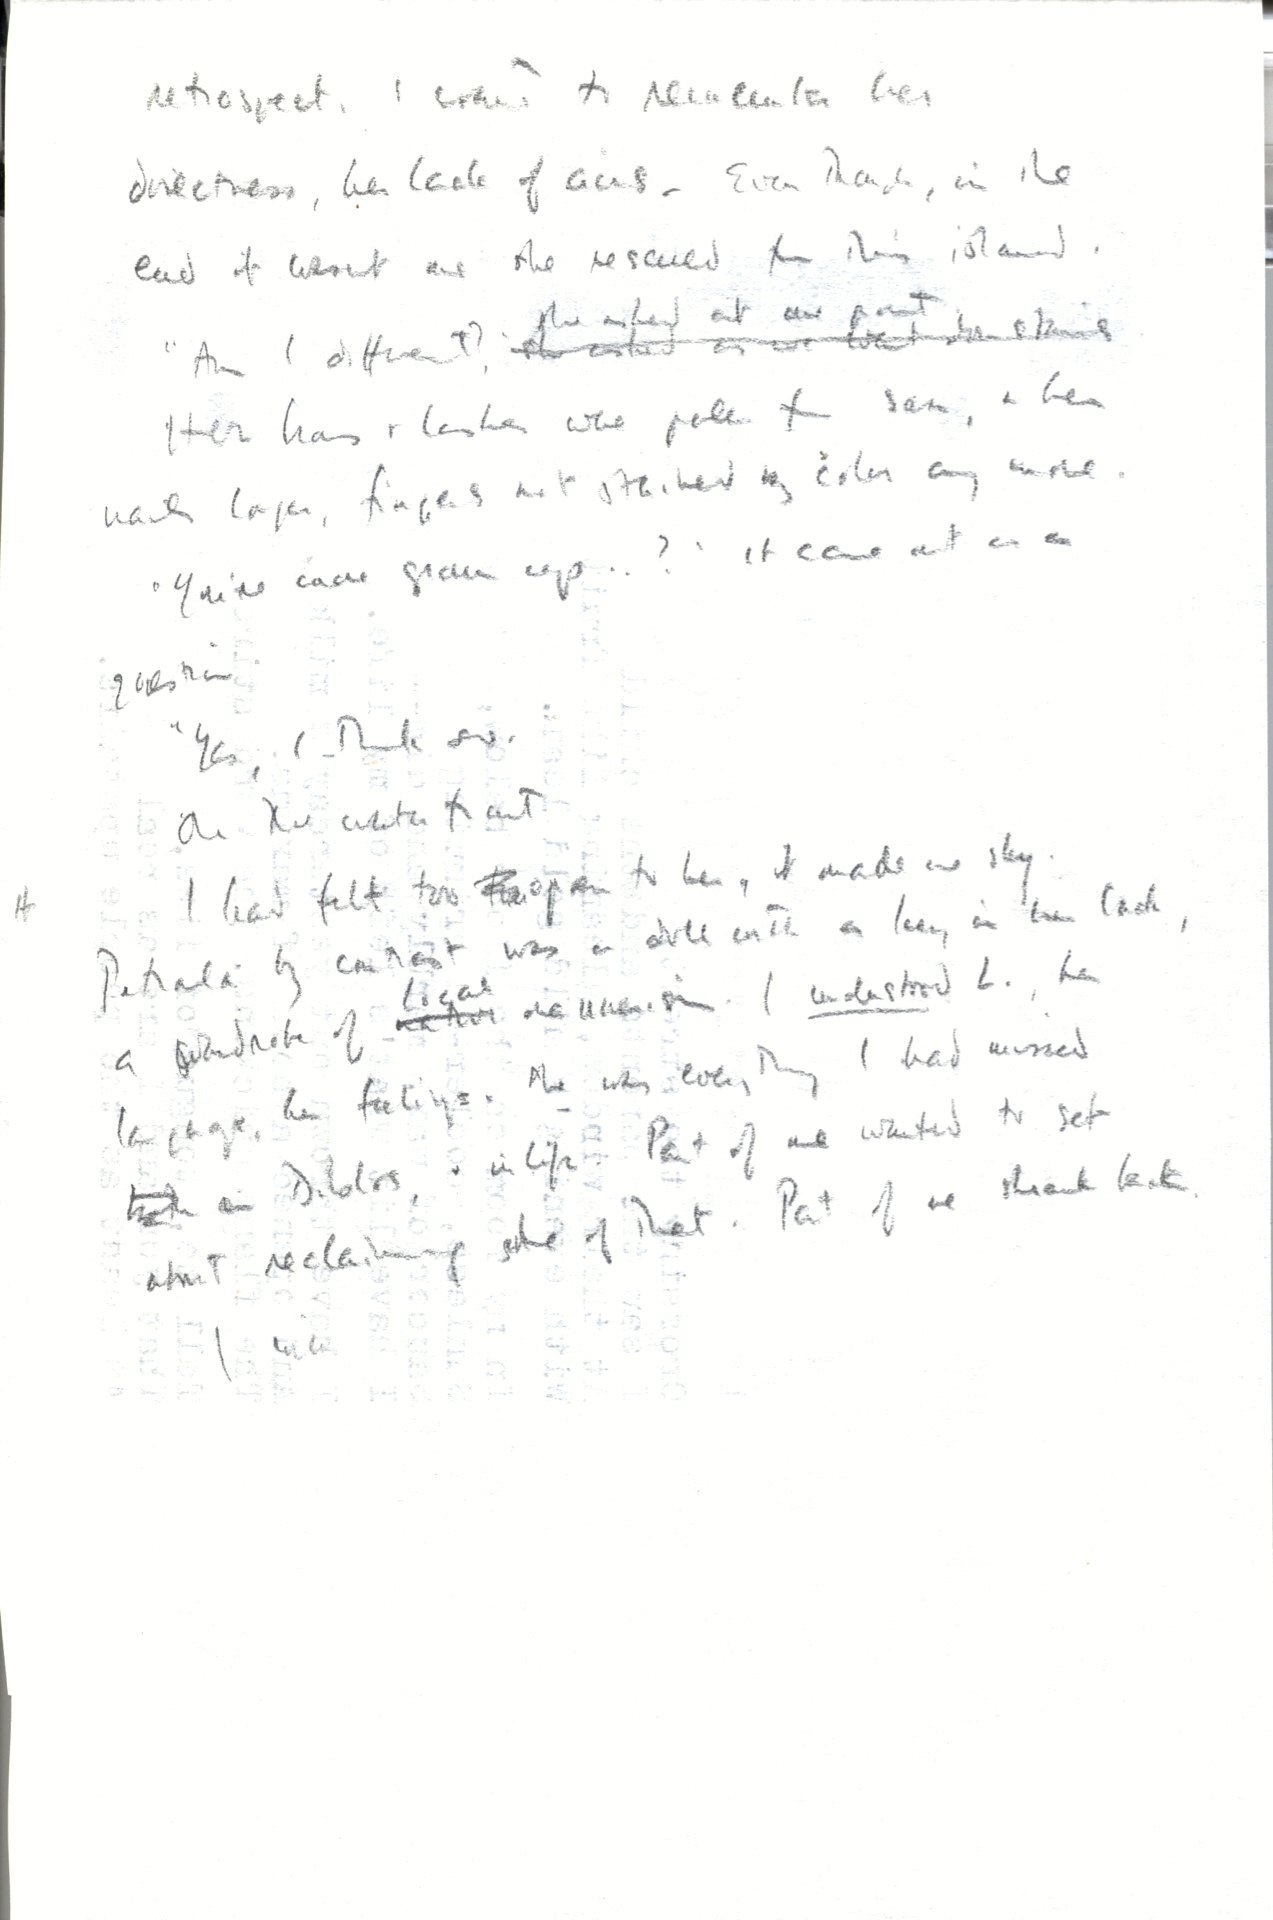 retrospect. I want to remember her
directness, her lack of airs. Even though, in the
end it wasn't me she rescued from this island.
she asked at one point
"Am I different?" she asked as we went downstairs
Her hair + lashes were paler from sun, + her
nails longer, fingers not stained by color any more.
"You're more grown up..?" it came out as a
question
"Yes, I think so.
On the waterfront
I had felt too open to her, it made me shy.
Petroula by contrast was a doll with a key in her back,
local
a wardrobe of mannerism. I understood her, her
language, her feelings. She was everything I had missed
both in Diblos, + in life. Part of me wanted to set
about reclaiming some of that. Part of me shrank back.
I